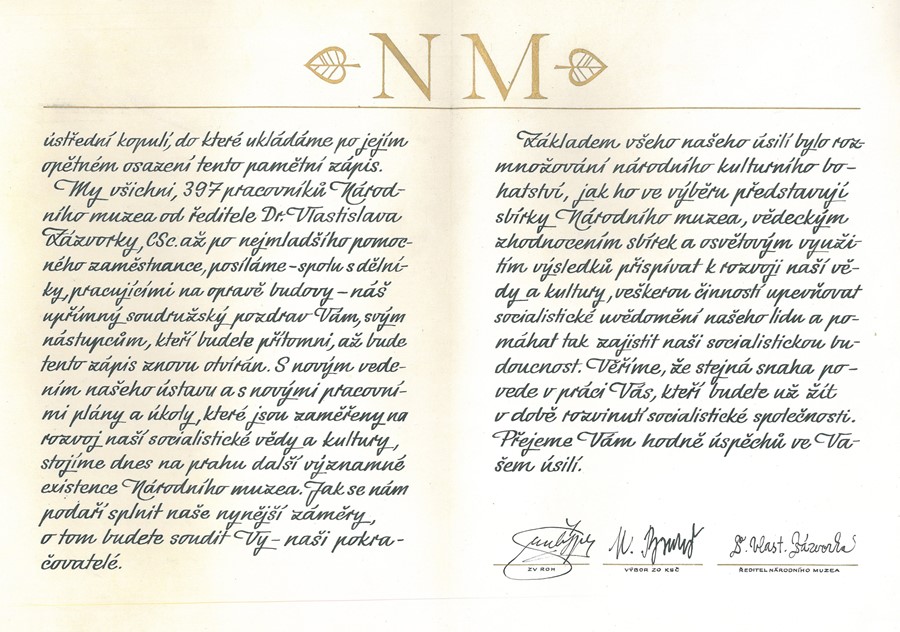 NM
ústřední kopulí, do které ukládáme po jejím
opětném osazení tento pamětní zápis.
My všichni, 397 pracovníků Národ-
ního muzea od ředitele Dr. Vlastislava
Zázvorky, CSc. až po nejmladšího pomoc-
ného zaměstnance, posíláme – spolu s dělní-
ky, pracujícími na opravě budovy – náš
upřímný soudružský pozdrav Vám, svým
nástupcům, kteří budete přítomni, až bude
tento zápis znovu otvírán. S novým vede-
ním našeho ústavu a s novými pracovní-
mi plány a úkoly, které jsou zaměřeny na
rozvoj naší socialistické vědy a kultury,
stojíme dnes na prahu další významné
existence Národního muzea. Jak se nám
podaří splnit naše nynější záměry,
o tom budete soudit Vy – naši pokra-
čovatelé.
Základem všeho našeho úsilí bylo roz-
množování národního kulturního bo-
hatství, jak ho ve výběru představují
sbírky Národního muzea, vědeckým
zhodnocením sbírek a osvětovým využi-
tím výsledků přispívat k rozvoji naší vě-
dy a kultury, veškerou činností upevňovat
socialistické uvědomění našeho lidu a po-
máhat tak zajistit naši socialistickou bu-
doucnost. Věříme, že stejná snaha po-
vede v práci Vás, kteří budete už žít
v době rozvinutí socialistické společnosti.
Přejeme Vám hodně úspěchů ve Va-
šem úsilí.
Dr. Vlast. Zázvorka
ZV ROH
VÝBOR ZO KSČ
ŘEDITEL NÁRODNÍHO MUZEA